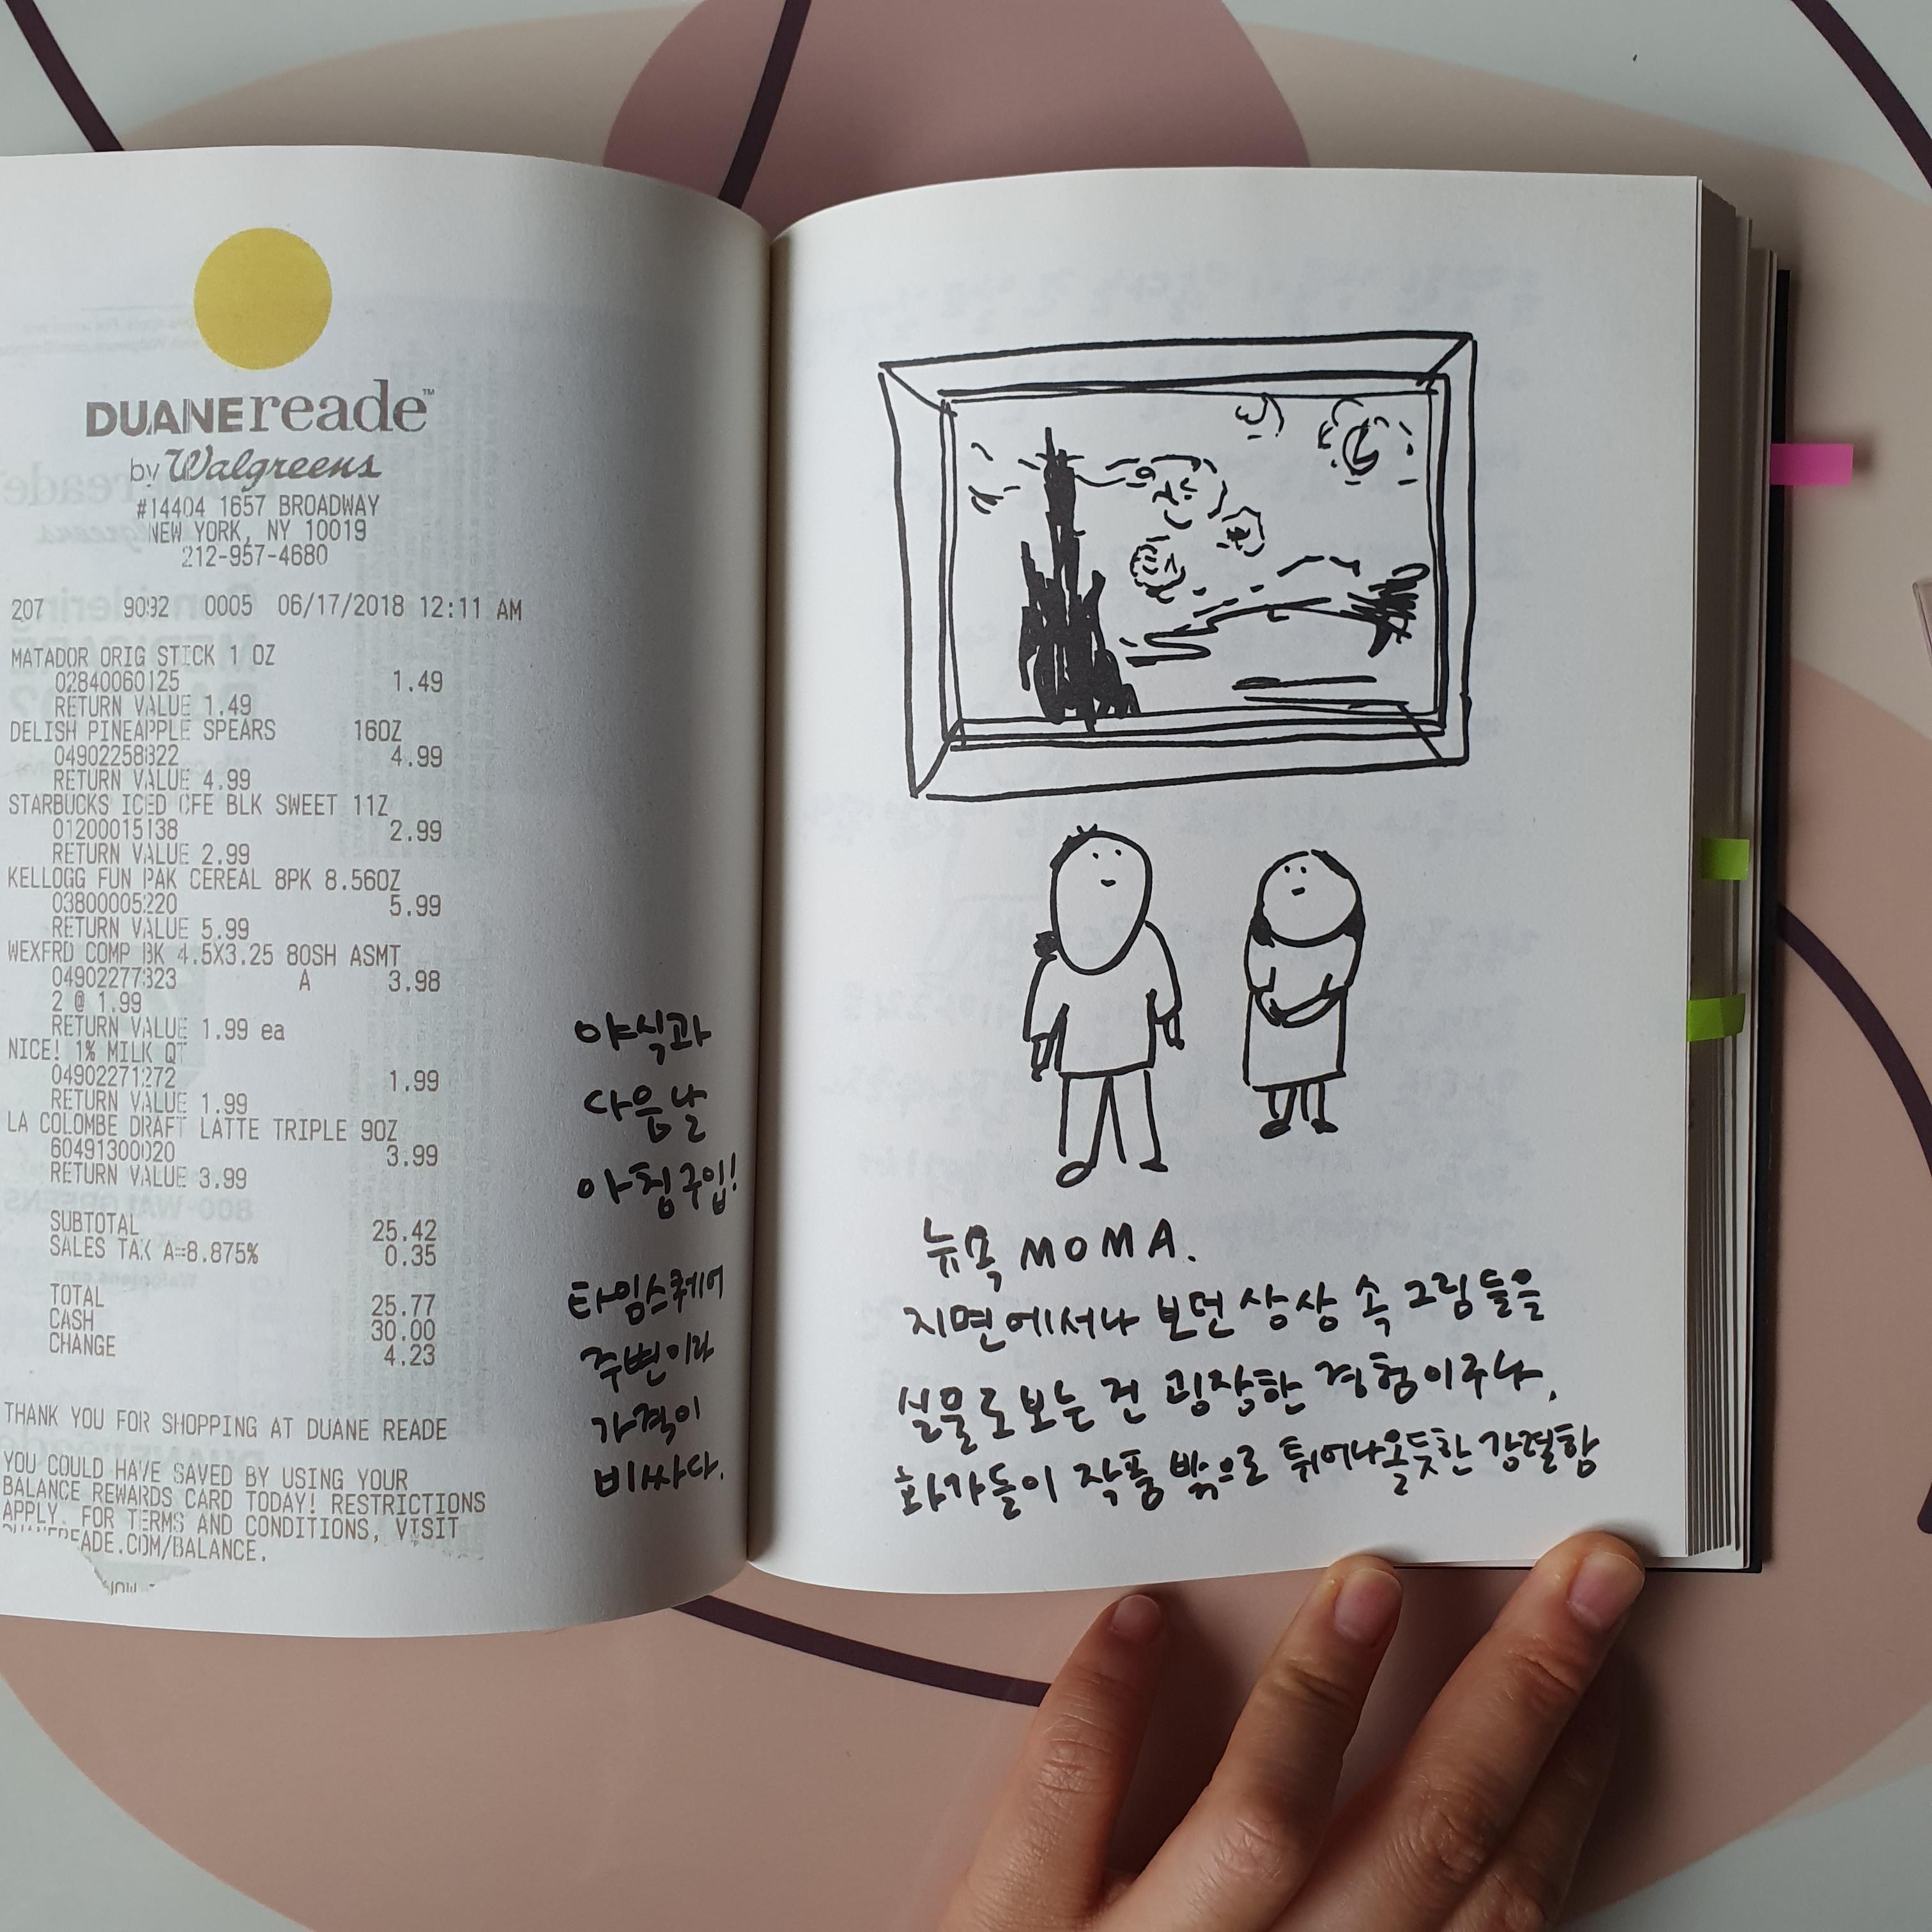 DUANEreade™
by Walgreens
#14404 1657 BROADWAY
NEW YORK, NY 10019
212-957-4680
207 9092 0005 06/17/2018 12:11 AM
MATADOR ORIG STICK 1 OZ
02840060125 1.49
RETURN VALUE 1.49
DELISH PINEAPPLE SPEARS 16OZ
04902258322 4.99
RETURN VALUE 4.99
STARBUCKS ICED CFE BLK SWEET 11Z
01200015138 2.99
RETURN VALUE 2.99
KELLOGG FUN PAK CEREAL 8PK 8.56OZ
03800005220 5.99
RETURN VALUE 5.99
WEXFRD COMP BK 4.5X3.25 80SH ASMT
04902277323 A 3.98
2 @ 1.99
RETURN VALUE 1.99 ea
NICE! 1% MILK QT
04902271272 1.99
RETURN VALUE 1.99
LA COLOMBE DRAFT LATTE TRIPLE 9OZ
60491300020 3.99
RETURN VALUE 3.99
SUBTOTAL 25.42
SALES TAX A=8.875% 0.35
TOTAL 25.77
CASH 30.00
CHANGE 4.23
THANK YOU FOR SHOPPING AT DUANE READE
YOU COULD HAVE SAVED BY USING YOUR
BALANCE REWARDS CARD TODAY! RESTRICTIONS
APPLY. FOR TERMS AND CONDITIONS, VISIT
DUANEREADE.COM/BALANCE.
야식과
다음날
아침구입!
타임스퀘어
주변이라
가격이
비싸다.
뉴욕 MOMA.
지면에서나 보던 상상 속 그림들을
실물로 보는 건 굉장한 경험이구나.
화가들이 작품 밖으로 튀어나올듯한 강렬함